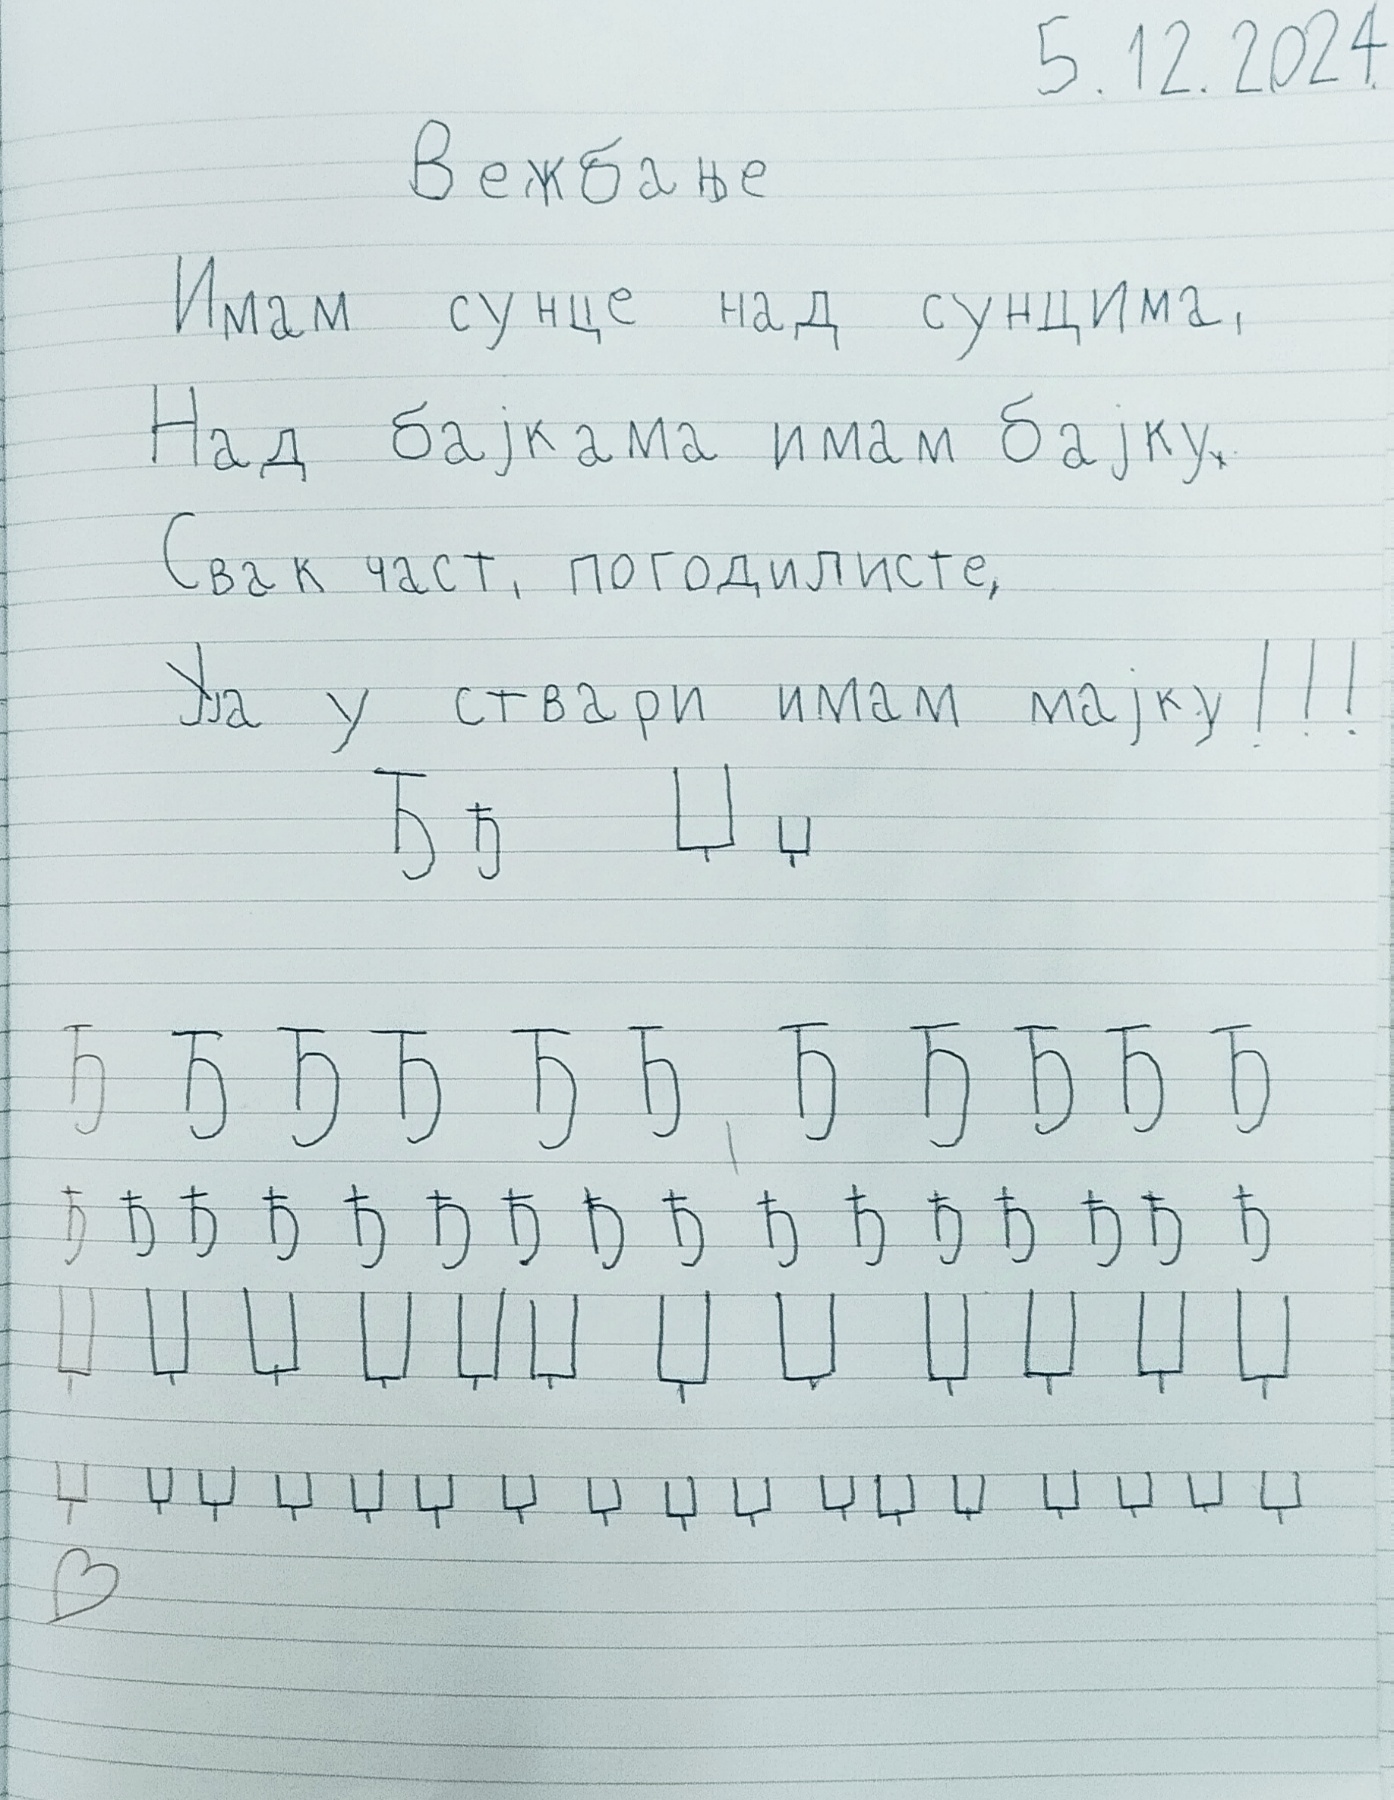 5.12.2024.
Вежбање
Имам сунце над сунцима,
Над бајкама имам бајку,
Свак част, погодилисте,
у ствари имам мајку!!!
Ђ ђ Џ џ
Ђ Ђ Ђ Ђ Ђ Ђ Ђ Ђ Ђ Ђ Ђ
ђ ђ ђ ђ ђ ђ ђ ђ ђ ђ ђ ђ ђ ђ ђ ђ
Џ Џ Џ Џ Џ Џ Џ Џ Џ Џ Џ Џ
џ џ џ џ џ џ џ џ џ џ џ џ џ џ џ џ џ